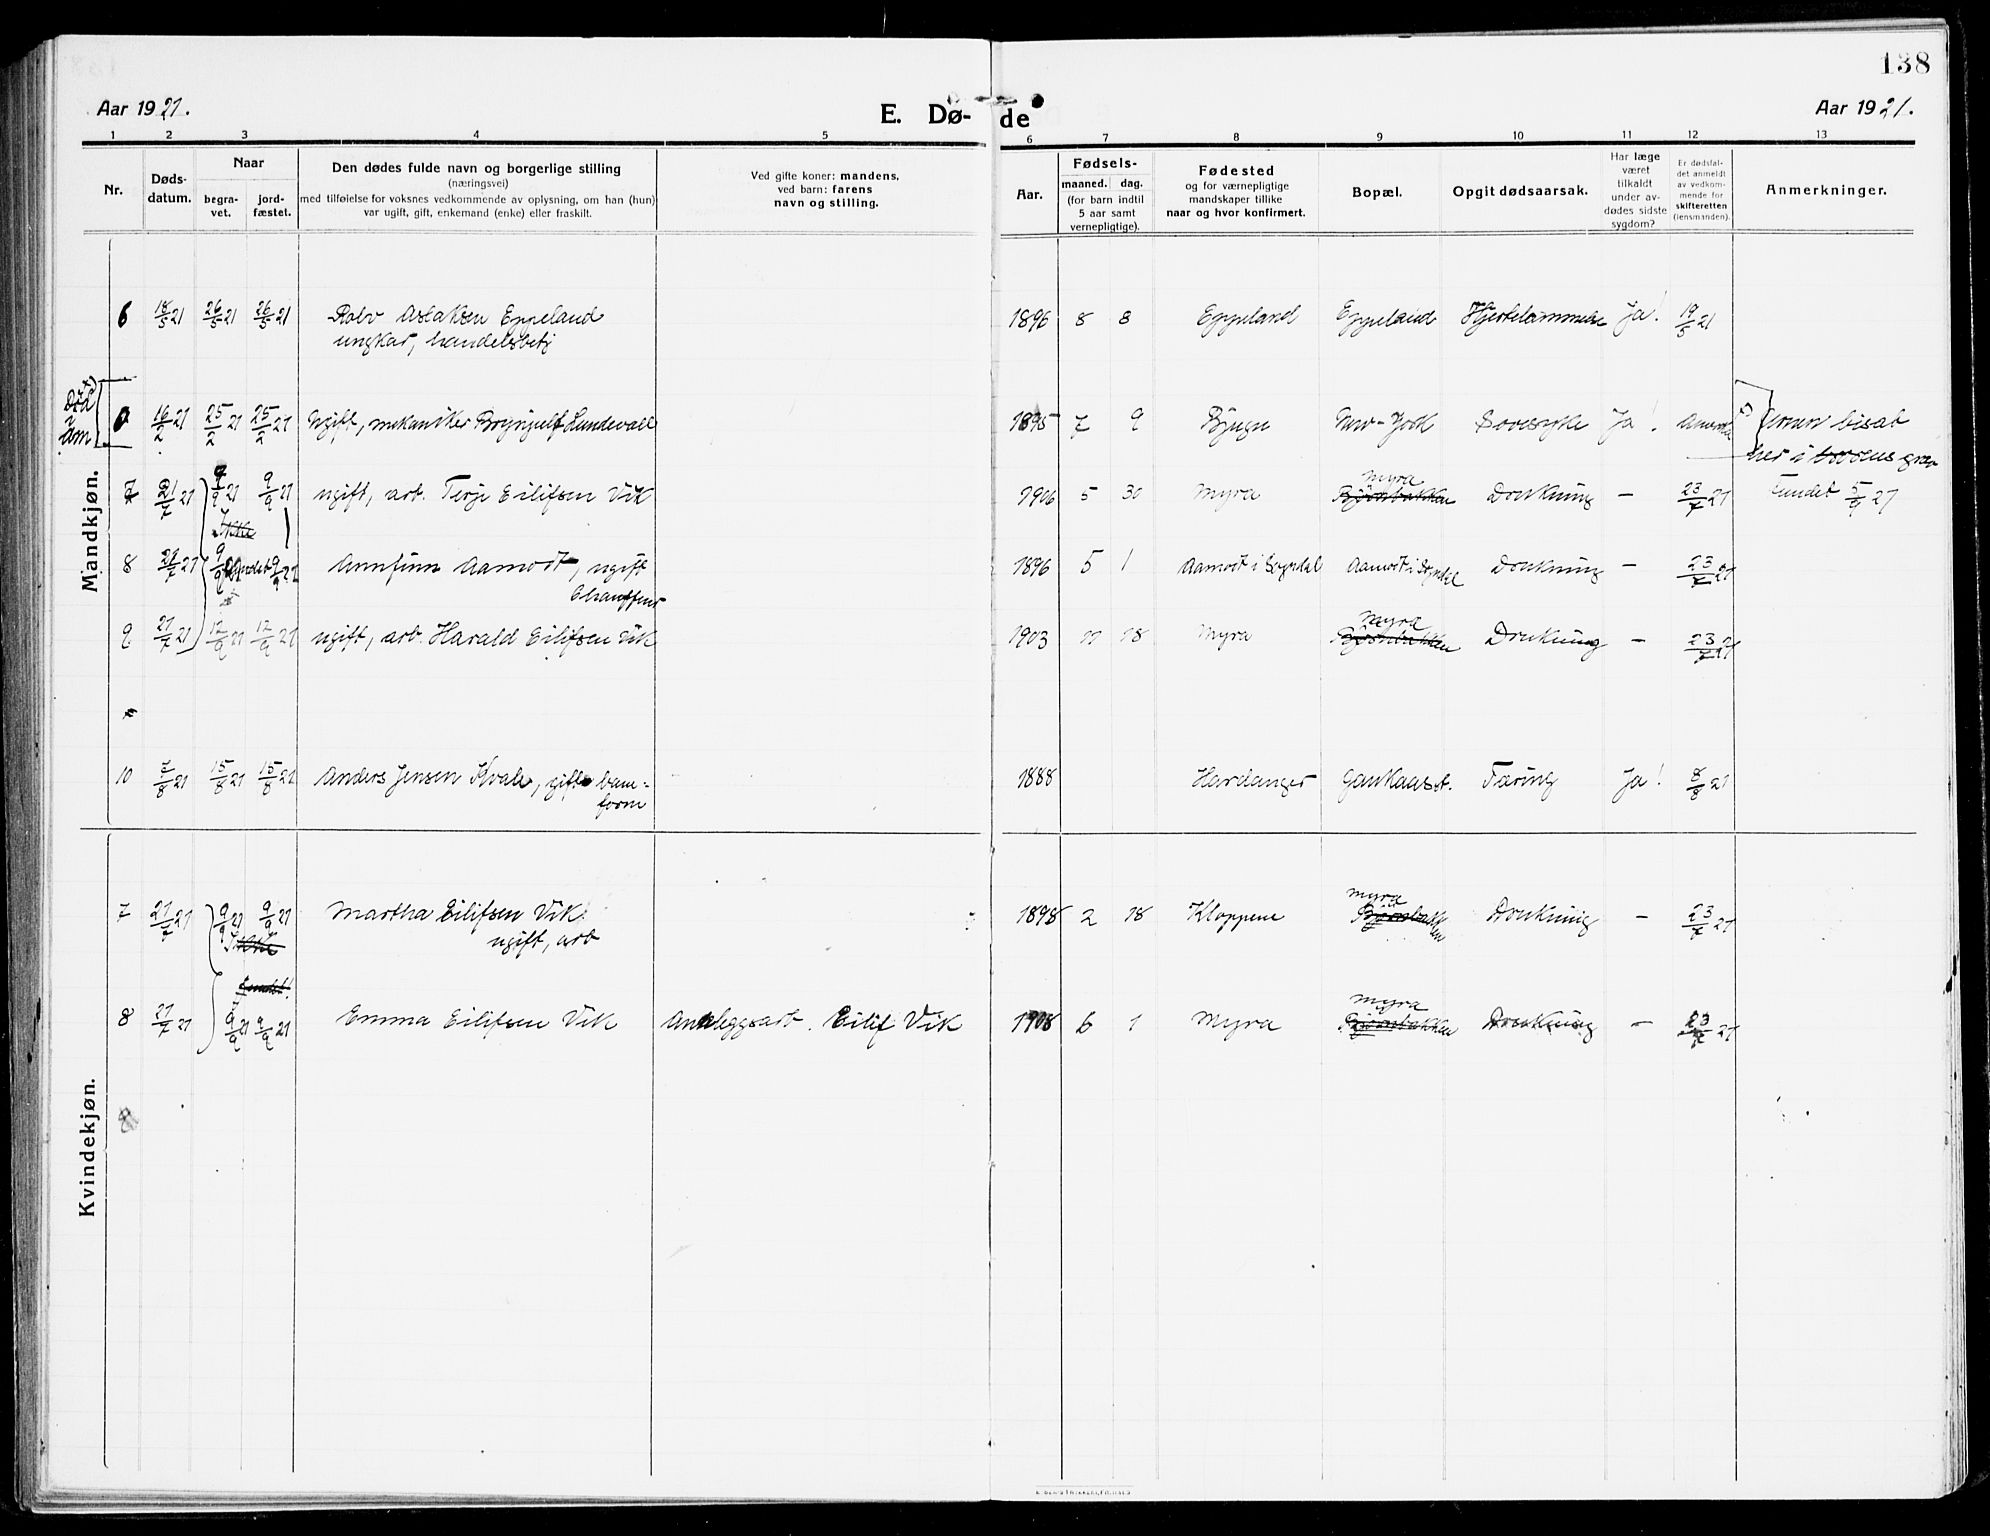 138
Aar 1921.
E. Dø- de
Aar 1921.
1 2 3 4 5 6 7 8 9 10 11 12 13
Nr.
Døds-
datum.
Naar
begra-
vet.
jord-
fæstet.
Den dødes fulde navn og borgerlige stilling
(næringsvei)
med tilføielse for voksnes vedkommende av oplysning, om han (hun)
var ugift, gift, enkemand (enke) eller fraskilt.
Ved gifte koner: mandens,
ved barn: farens
navn og stilling.
Aar.
Fødsels-
maaned. dag.
(for barn indtil
5 aar samt
vernepligtige).
Fødested
og for værnepligtige
mandskaper tillike
naar og hvor konfirmert.
Bopæl.
Opgit dødsaarsak.
Har læge
været
tilkaldt
under av-
dødes sidste
sygdom?
Er dødsfal-
det anmeldt
av vedkom-
mende for
skifteretten
(lensmanden).
Anmerkninger.
Mandkjøn.
6 18/5 21 26/5 21 26/5 21 Rolv Aslaksen Eppeland 1896 8 8 Eppeland Eppeland Hjertelammelse Ja! 19/5 21
ungkar, handelsbetj
Død
i
Am
16/2 21 25/2 21 25/2 21 Ugift, mekaniker Brynjulf Lundevall 1895 7 9 Bjugn New-York Sovesyke Ja!
her i
7 21/7 21 9/9 21 9/9 21 ugift, arb. Terje Eilifsen Vik 1906 5 30 Myra Myra Bjørnbakken Drukning - 23/7 21 Fundet 5/9 21
Ikke
8 21/7 21 9/9 21 fundet 9/9 21 Arnfinn Aamodt, ugift 1896 5 1 Aamodt i Sogndal Aamodt i Sogndal Drukning - 23/7 21
Chauffeur
9 21/7 21 12/9 21 12/9 21 ugift, arb. Harald Eilifsen Vik 1903 11 18 Myra Myra Bjørnbakken Drukning - 23/7 21
10 7/8 21 15/8 21 15/8 21 Anders Jensen Kvale, gift bane- 1888 Hardanger Gaukaasst. Tæring Ja! 8/8 21
form
Kvindekjøn.
7 21/7 21 9/9 21 9/9 21 Martha Eilifsen Vik 1898 2 18 Kloppene Myra Bjørnbakken Drukning - 23/7 21
Ikke ugift, arb
fundet!
8 21/7 21 9/9 21 9/9 21 Emma Eilifsen Vik Anleggsarb. Eilif Vik 1908 6 1 Myra Myra Bjørnbakken Drukning - 23/7 21
8